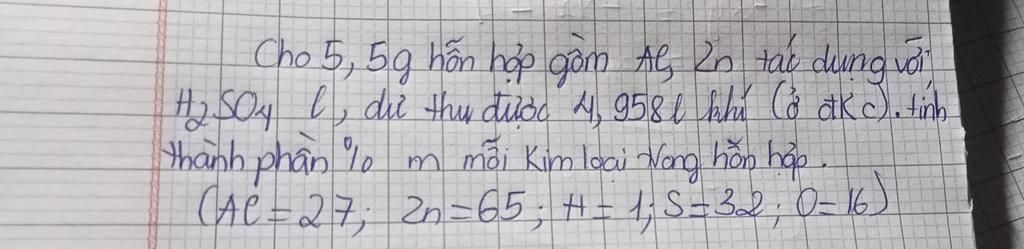 Cho 5,5g hỗn hợp gồm Al, Zn tác dụng với
H2SO4 l, dư thu được 4,958l khí (ở đkc). tính
thành phần % m mỗi kim loại trong hỗn hợp.
(Al = 27; Zn = 65; H = 1; S = 32; O = 16)